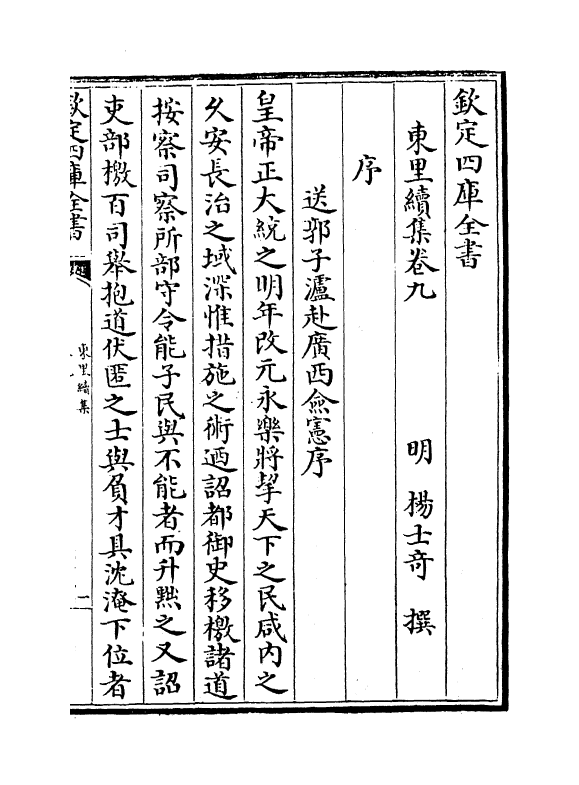 欽定四庫全書
東里續集卷九
明 楊士奇 撰
序
送郭子瀘赴廣西僉憲序
皇帝正大統之明年改元永樂將挈天下之民咸内之
久安長治之域深惟措施之術迺詔都御史移檄諸道
按察司察所部守令能子民與不能者而升黜之又詔
吏部檄百司舉抱道伏匿之士與負才具沈淹下位者
欽定四庫全書
東里續集
一